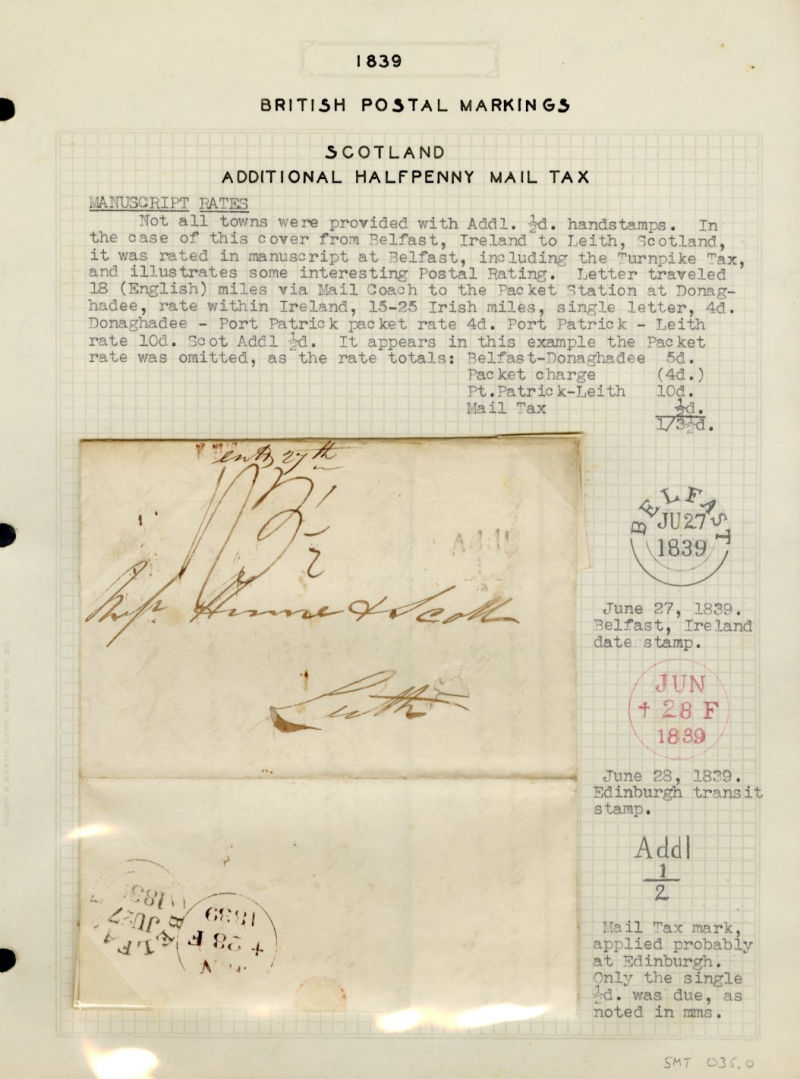 1839
BRITISH POSTAL MARKINGS
SCOTLAND
ADDITIONAL HALFPENNY MAIL TAX
MANUSCRIPT RATES
Not all towns were provided with Addl. ½d. handstamps. In
the case of this cover from Belfast, Ireland to Leith, Scotland,
it was rated in manuscript at Belfast, including the Turnpike Tax,
and illustrates some interesting Postal Rating. Letter traveled
18 (English) miles via Mail Coach to the Packet Station at Donag-
hadee, rate within Ireland, 15-25 Irish miles, single letter, 4d.
Donaghadee - Port Patrick packet rate 4d. Port Patrick - Leith
rate 10d. Scot Addl ½d. It appears in this example the Packet
rate was omitted, as the rate totals: Belfast-Donaghadee 5d.
Packet charge (4d.)
Pt.Patrick-Leith 10d.
Mail Tax ½d.
1/3½d.
27th
1/3½
Addl
Messrs. Hume & Scott
Leith
BELFAST
JU 27
1839
June 27, 1839.
Belfast, Ireland
date stamp.
JUN
+ 28 F
1839
June 28, 1839.
Edinburgh transit
stamp.
Addl
1
2
Mail Tax mark,
applied probably
at Edinburgh.
Only the single
½d. was due, as
noted in mms.
JU 27
1839
+ 28 F
SMT 035.0